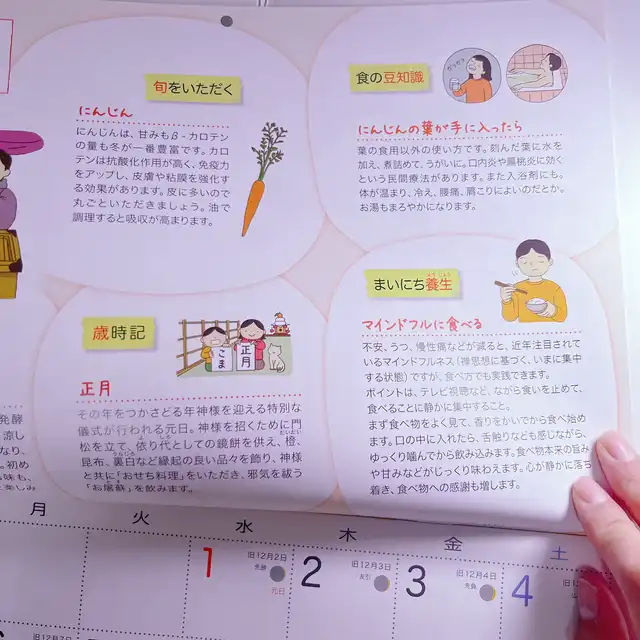 旬をいただく
にんじん
にんじんは、甘みもβ-カロテン
の量も冬が一番豊富です。カロ
テンは抗酸化作用が高く、免疫力
をアップし、皮膚や粘膜を強化す
る効果があります。皮に多いので
丸ごといただきましょう。油で
調理すると吸収が高まります。
食の豆知識
にんじんの葉が手に入ったら
葉の食用以外の使い方です。刻んだ葉に水を
加え、煮詰めて、うがいに。口内炎や扁桃炎に効く
という民間療法があります。また入浴剤にも。
体が温まり、冷え、腰痛、肩こりによいのだとか。
お湯もまろやかになります。
歳時記
こま
正月
正月
その年をつかさどる年神様を迎える特別な
儀式が行われる元日。神様を招くために門
松を立て、依り代としての鏡餅を供え、橙、
昆布、裏白など縁起の良い品々を飾り、神様
と共に「おせち料理」をいただき、邪気を祓う
「お屠蘇」を飲みます。
まいにち養生
ようじょう
マインドフルに食べる
不安、うつ、慢性痛などが減ると、近年注目されて
いるマインドフルネス(禅思想に基づく、いまに集中
する状態)ですが、食べ方でも実践できます。
ポイントは、テレビ視聴など、ながら食いを止めて、
食べることに静かに集中すること。
まず食べ物をよく見て、香りをかいでから食べ始め
ます。口の中に入れたら、舌触りなども感じながら、
ゆっくり噛んでから飲み込みます。食べ物本来の旨み
や甘みなどがじっくり味わえます。心が静かに落ち
着き、食べ物への感謝も増します。
発酵
涼し
なり、
初め
味も、
楽しみ
月 火 水 木 金 土
1 旧12月2日 先勝 元日
2 旧12月3日 友引
3 旧12月4日 先負
4